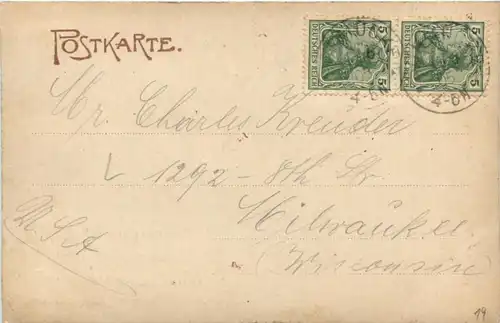 POSTKARTE.
5 DEUTSCHES REICH 5
5 DEUTSCHES REICH 5
4-5N
4-5N
Mr Charles Kreuder
1292-8th Str.
Milwaukee
(Wisconsin)
USA
19